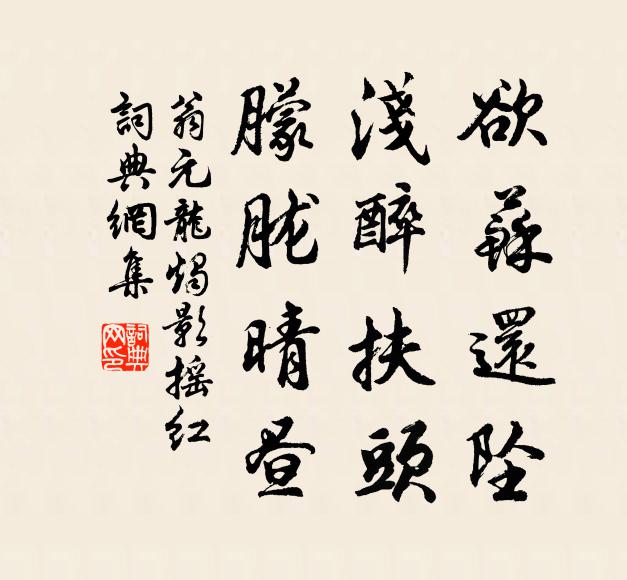 欲蘇還墜
淺醉扶頭
朦朧晴晝
翁元龍燭影搖紅
詞典網集
詞典网印